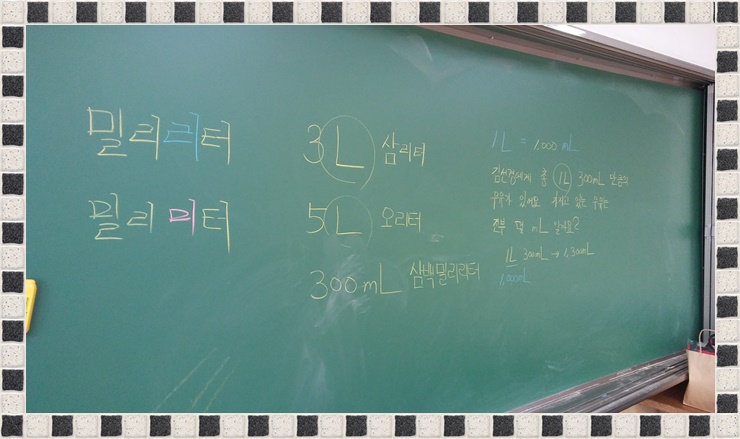 밀리리터
밀리미터
3L 삼리터
5L 오리터
300mL 삼백밀리리터
1L = 1,000 mL
김선경에게 총 1L 300mL 만큼의
우유가 있어요. 가지고 있는 우유는
전부 몇 mL 일까요?
1L 300mL → 1,300mL
1,000mL